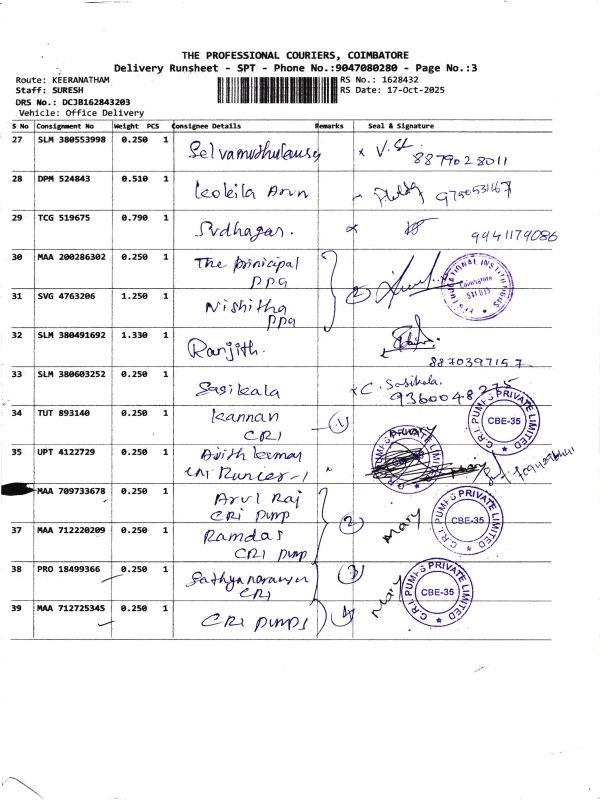 THE PROFESSIONAL COURIERS, COIMBATORE
Delivery Runsheet - SPT - Phone No.:9047080280 - Page No.:3
Route: KEERANATHAM RS No.: 1628432
Staff: SURESH RS Date: 17-Oct-2025
DRS No.: DCJB162843203
Vehicle: Office Delivery
S No Consignment No Weight PCS Consignee Details Remarks Seal & Signature
27 SLM 380553998 0.250 1 8879028011
28 DPM 524843 0.510 1 Kokila Arun 9750531167
29 TCG 519675 0.790 1 Sudhagar. 9941179086
30 MAA 200286302 0.250 1 The prinicipal
PPG
31 SVG 4763206 1.250 1 Nishitha
PPG
32 SLM 380491692 1.330 1 Ranjith. 8870397157
33 SLM 380603252 0.250 1 Sasikala C. Sasikala.
9360048275
34 TUT 893140 0.250 1 Kannan
CRI 1 C.R.I. PUMPS PRIVATE LIMITED CBE-35
35 UPT 4122729 0.250 1
MAA 709733678 0.250 1 Arul Raj
CRI pump 2 Mary C.R.I. PUMPS PRIVATE LIMITED CBE-35
37 MAA 712220209 0.250 1 Ramdas
CRI pump
38 PRO 18499366 0.250 1 Sathyanarayanan
CRI 3 Mary C.R.I. PUMPS PRIVATE LIMITED CBE-35
39 MAA 712725345 0.250 1 CRI pumps 4